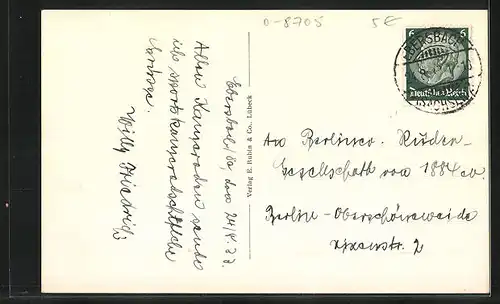 o-8705 5€
Ebersbach/Sa, den 24/4.37.
Allen Kameraden sende
ich sportkameradschaftliche
Grüsse.
Willy Friedrich
Verlag E. Rubin & Co., Lübeck
6 6
Deutsches Reich
EBERSBACH
(SACHSEN)
An Berliner. Ruder-
Gesellschaft von 1884 e.v.
Berlin-Oberschöneweide
str. 2